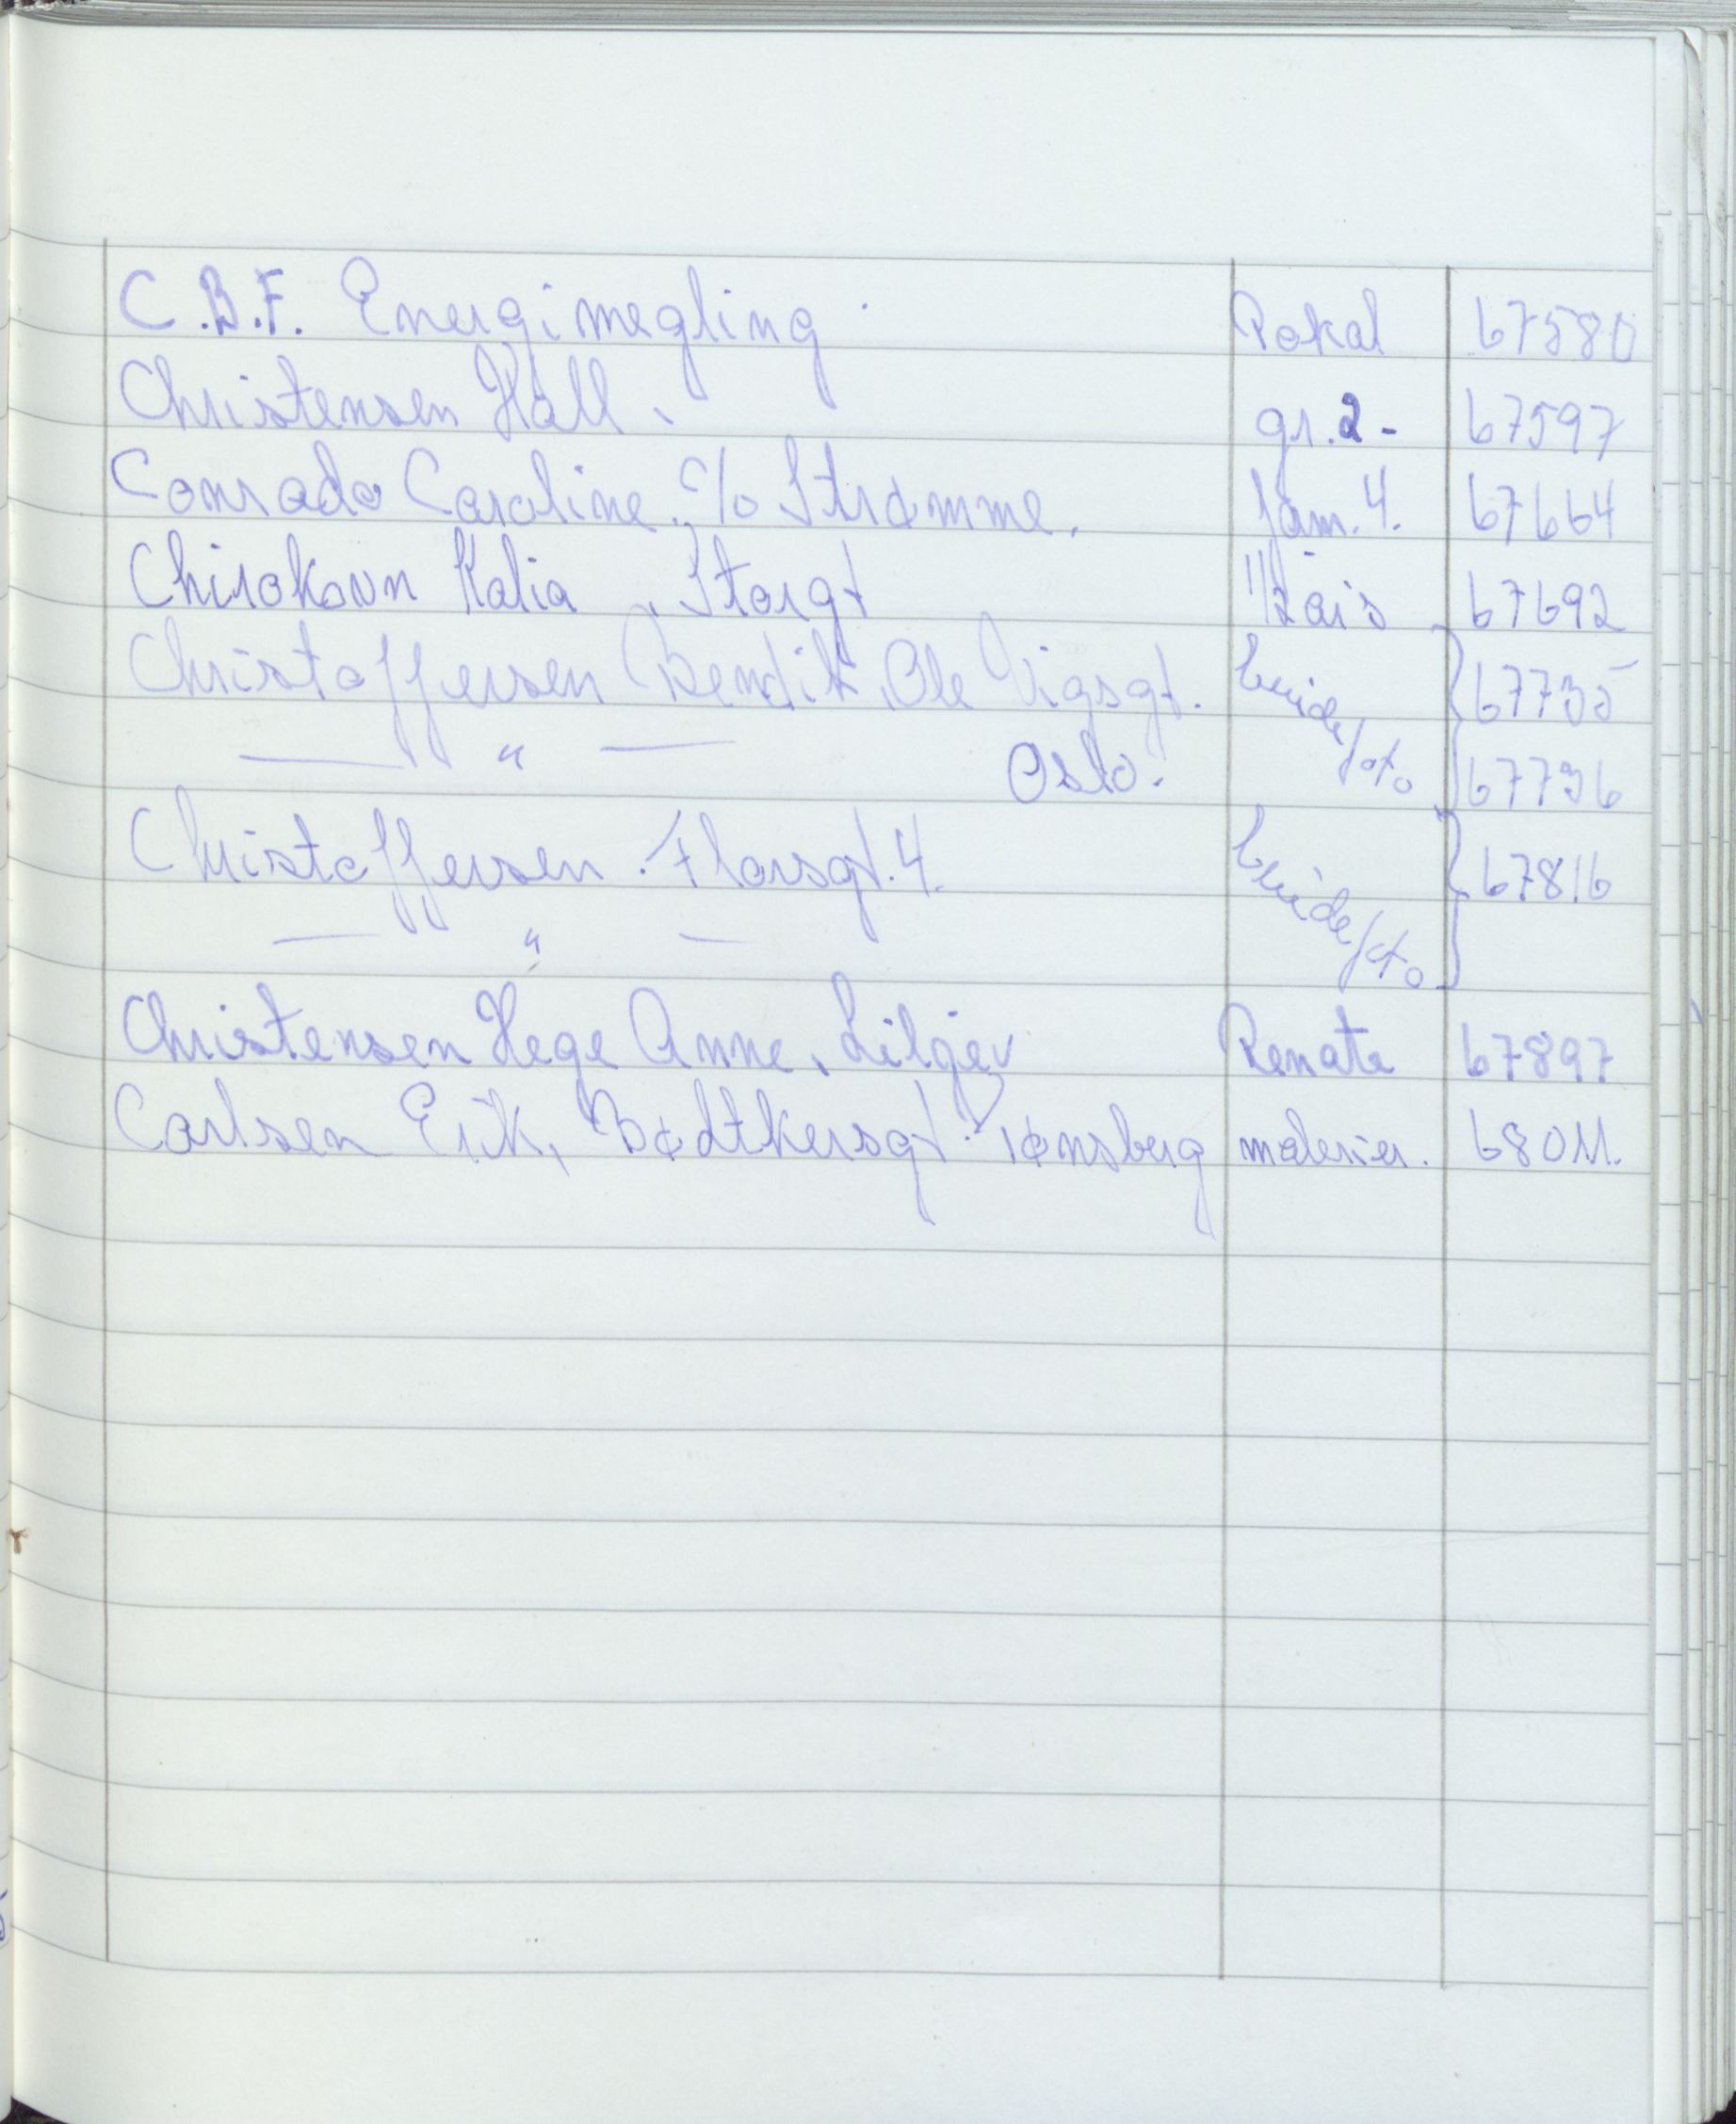 C.B.F. Energimegling. Pokal 67580
Christensen Hall. gr. 2 - 67597
Conrado Caroline. c/o Strømme. fam. 4. 67664
Katia, Storgt 1/2 års 67692
Christoffersen Bendik, Ole Vigsgt. brude/oto 67735
— " — Oslo. 67736
Christoffersen. Florsgt. 4. brude/oto 67816
— " —
Christensen Hege Anne, Liljev Renate 67897
Carlsen Erik, Bødtkersgt. Tønsberg malerier. 68011.